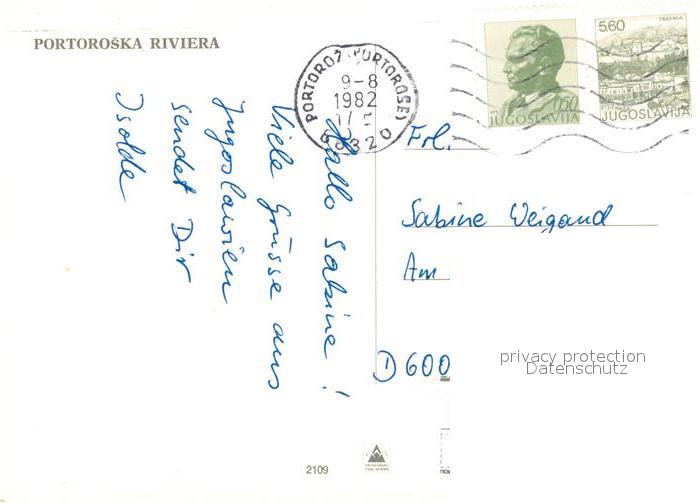 PORTOROŠKA RIVIERA
Hallo Sabine!
Viele Grüsse aus
Jugoslawien
sendet Dir
Isolde
PORTOROŽ-PORTOROSE)
9-8
1982
66320
0,50
JUGOSLAVIJA
5,60
TRAVNIK
JUGOSLAVIJA
Frl.
Sabine Weigand
Am
D 600
privacy protection
Datenschutz
2109